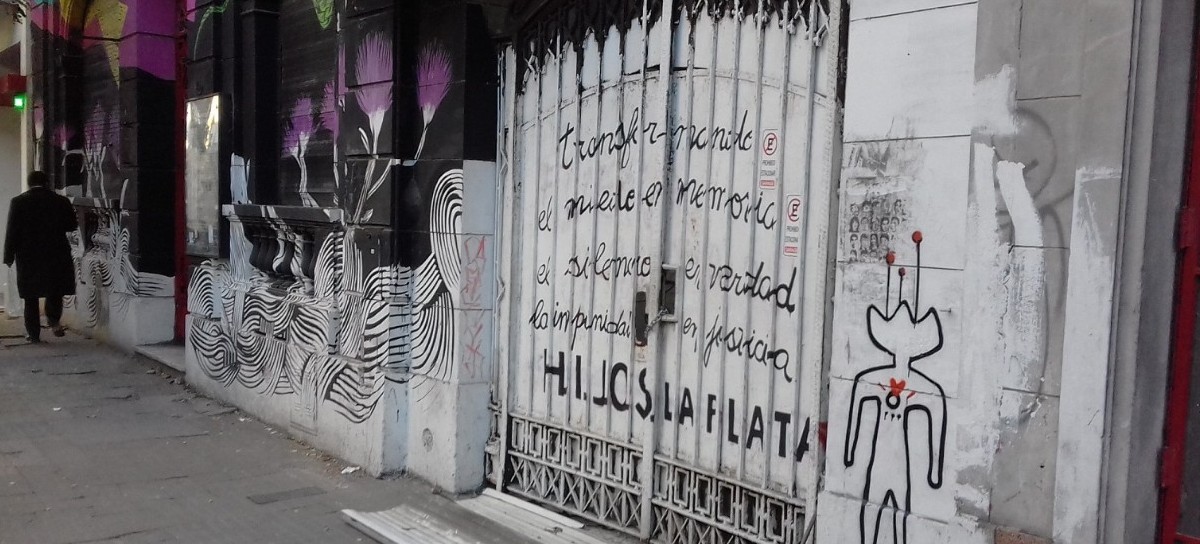 transfor-mando
el miedo en memoria
el silencio en verdad
la impunidad en justicia
H.I.J.O.S. LA PLATA
E
PROHIBIDO
ESTACIONAR
E
PROHIBIDO
ESTACIONAR